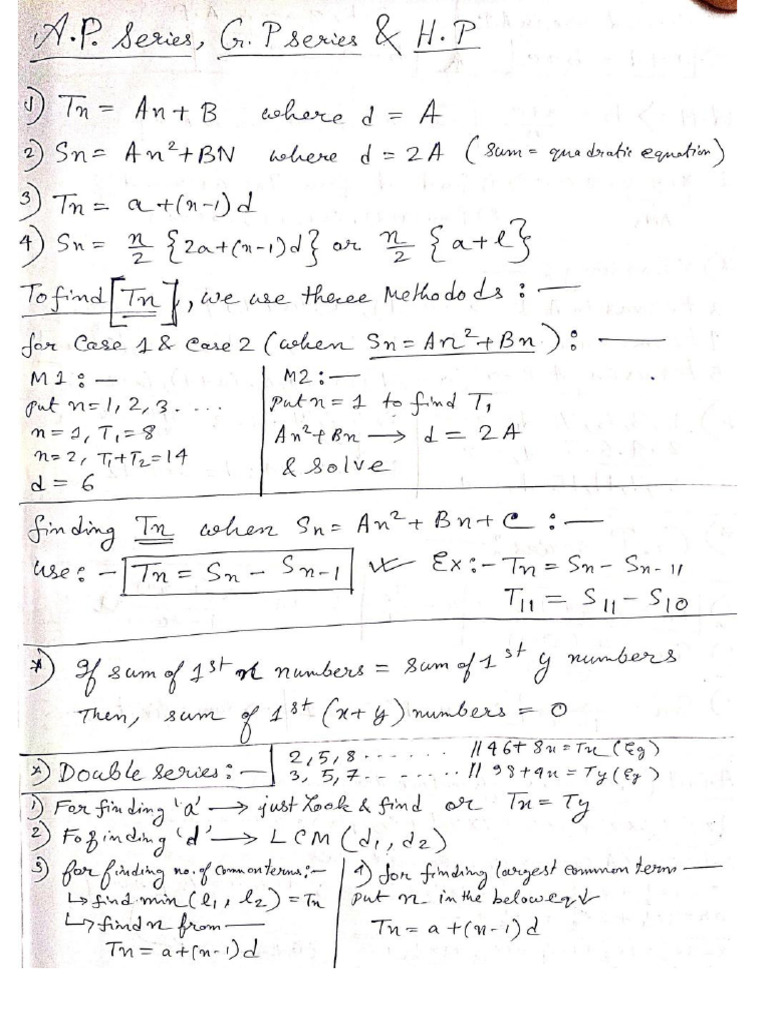 A.P. Series, G.P series & H.P
1) Tn = An + B where d = A
2) Sn = An² + BN where d = 2A (sum = quadratic equation)
3) Tn = a + (n-1)d
4) Sn = n/2 {2a + (n-1)d} or n/2 {a + l}
To find [Tn], we use theree Methodods :—
for Case 1 & Case 2 (when Sn = An² + Bn) :—
M1 :—
put n = 1, 2, 3 . ...
n = 1, T₁ = 8
n = 2, T₁ + T₂ = 14
d = 6
M2 :—
Put n = 1 to find T₁
An² + Bn → d = 2A
& Solve
finding Tn when Sn = An² + Bn + C :—
use : - Tn = Sn - Sn-1 Ex :- Tn = Sn - Sn-11
T11 = S11 - S10
*) If sum of 1st x numbers = sum of 1st y numbers
Then, sum of 1st (x + y) numbers = 0
*) Double series :—
2, 5, 8 ...... // 46 + 8n = Tn (Eg)
3, 5, 7 ...... // 98 + 9n = Ty (Eg)
1) For finding 'a' → just Look & find or Tn = Ty
2) Fofinding 'd' → LCM (d₁, d₂)
3) for finding no. of common terms :-
↳ find min (l₁, l₂) = Tn
↳ find n from —
Tn = a + (n-1)d
4) for finding largest common term —
put n in the below eq ↓
Tn = a + (n-1)d